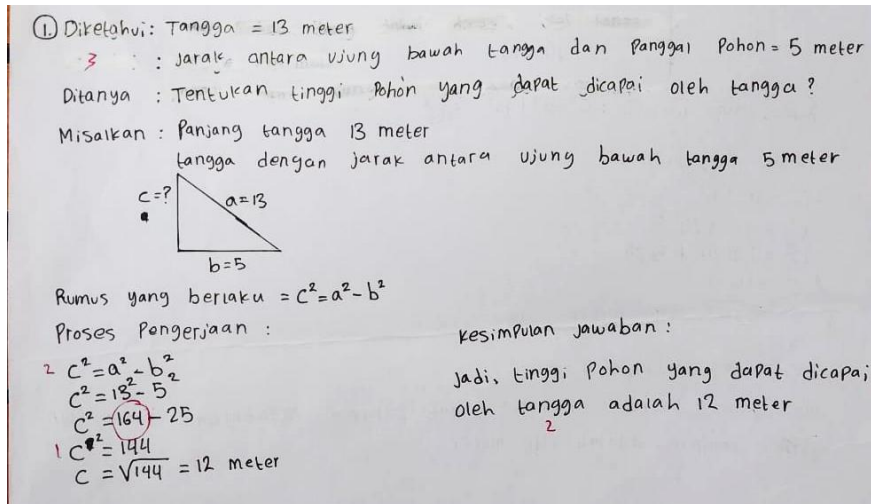 1. Diketahui: Tangga = 13 meter
3 : Jarak antara ujung bawah tangga dan Panggal Pohon = 5 meter
Ditanya : Tentukan tinggi Pohon yang dapat dicapai oleh tangga?
Misalkan : Panjang tangga 13 meter
tangga dengan jarak antara ujung bawah tangga 5 meter
c=?
a=13
b=5
Rumus yang berlaku = c²=a²-b²
Proses Pengerjaan :
2 c²=a²-b²
c²=13²-5²
c²=164-25
1 c²=144
c=√144 = 12 meter
Kesimpulan jawaban :
Jadi, tinggi Pohon yang dapat dicapai
oleh tangga adalah 12 meter
2